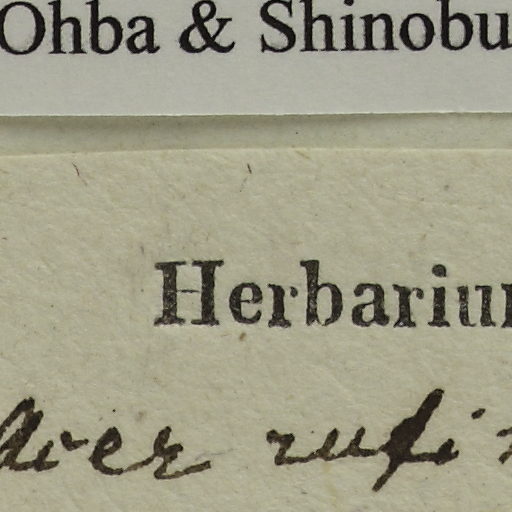 Ohba & Shinobu
Herbariu
Acer rufi